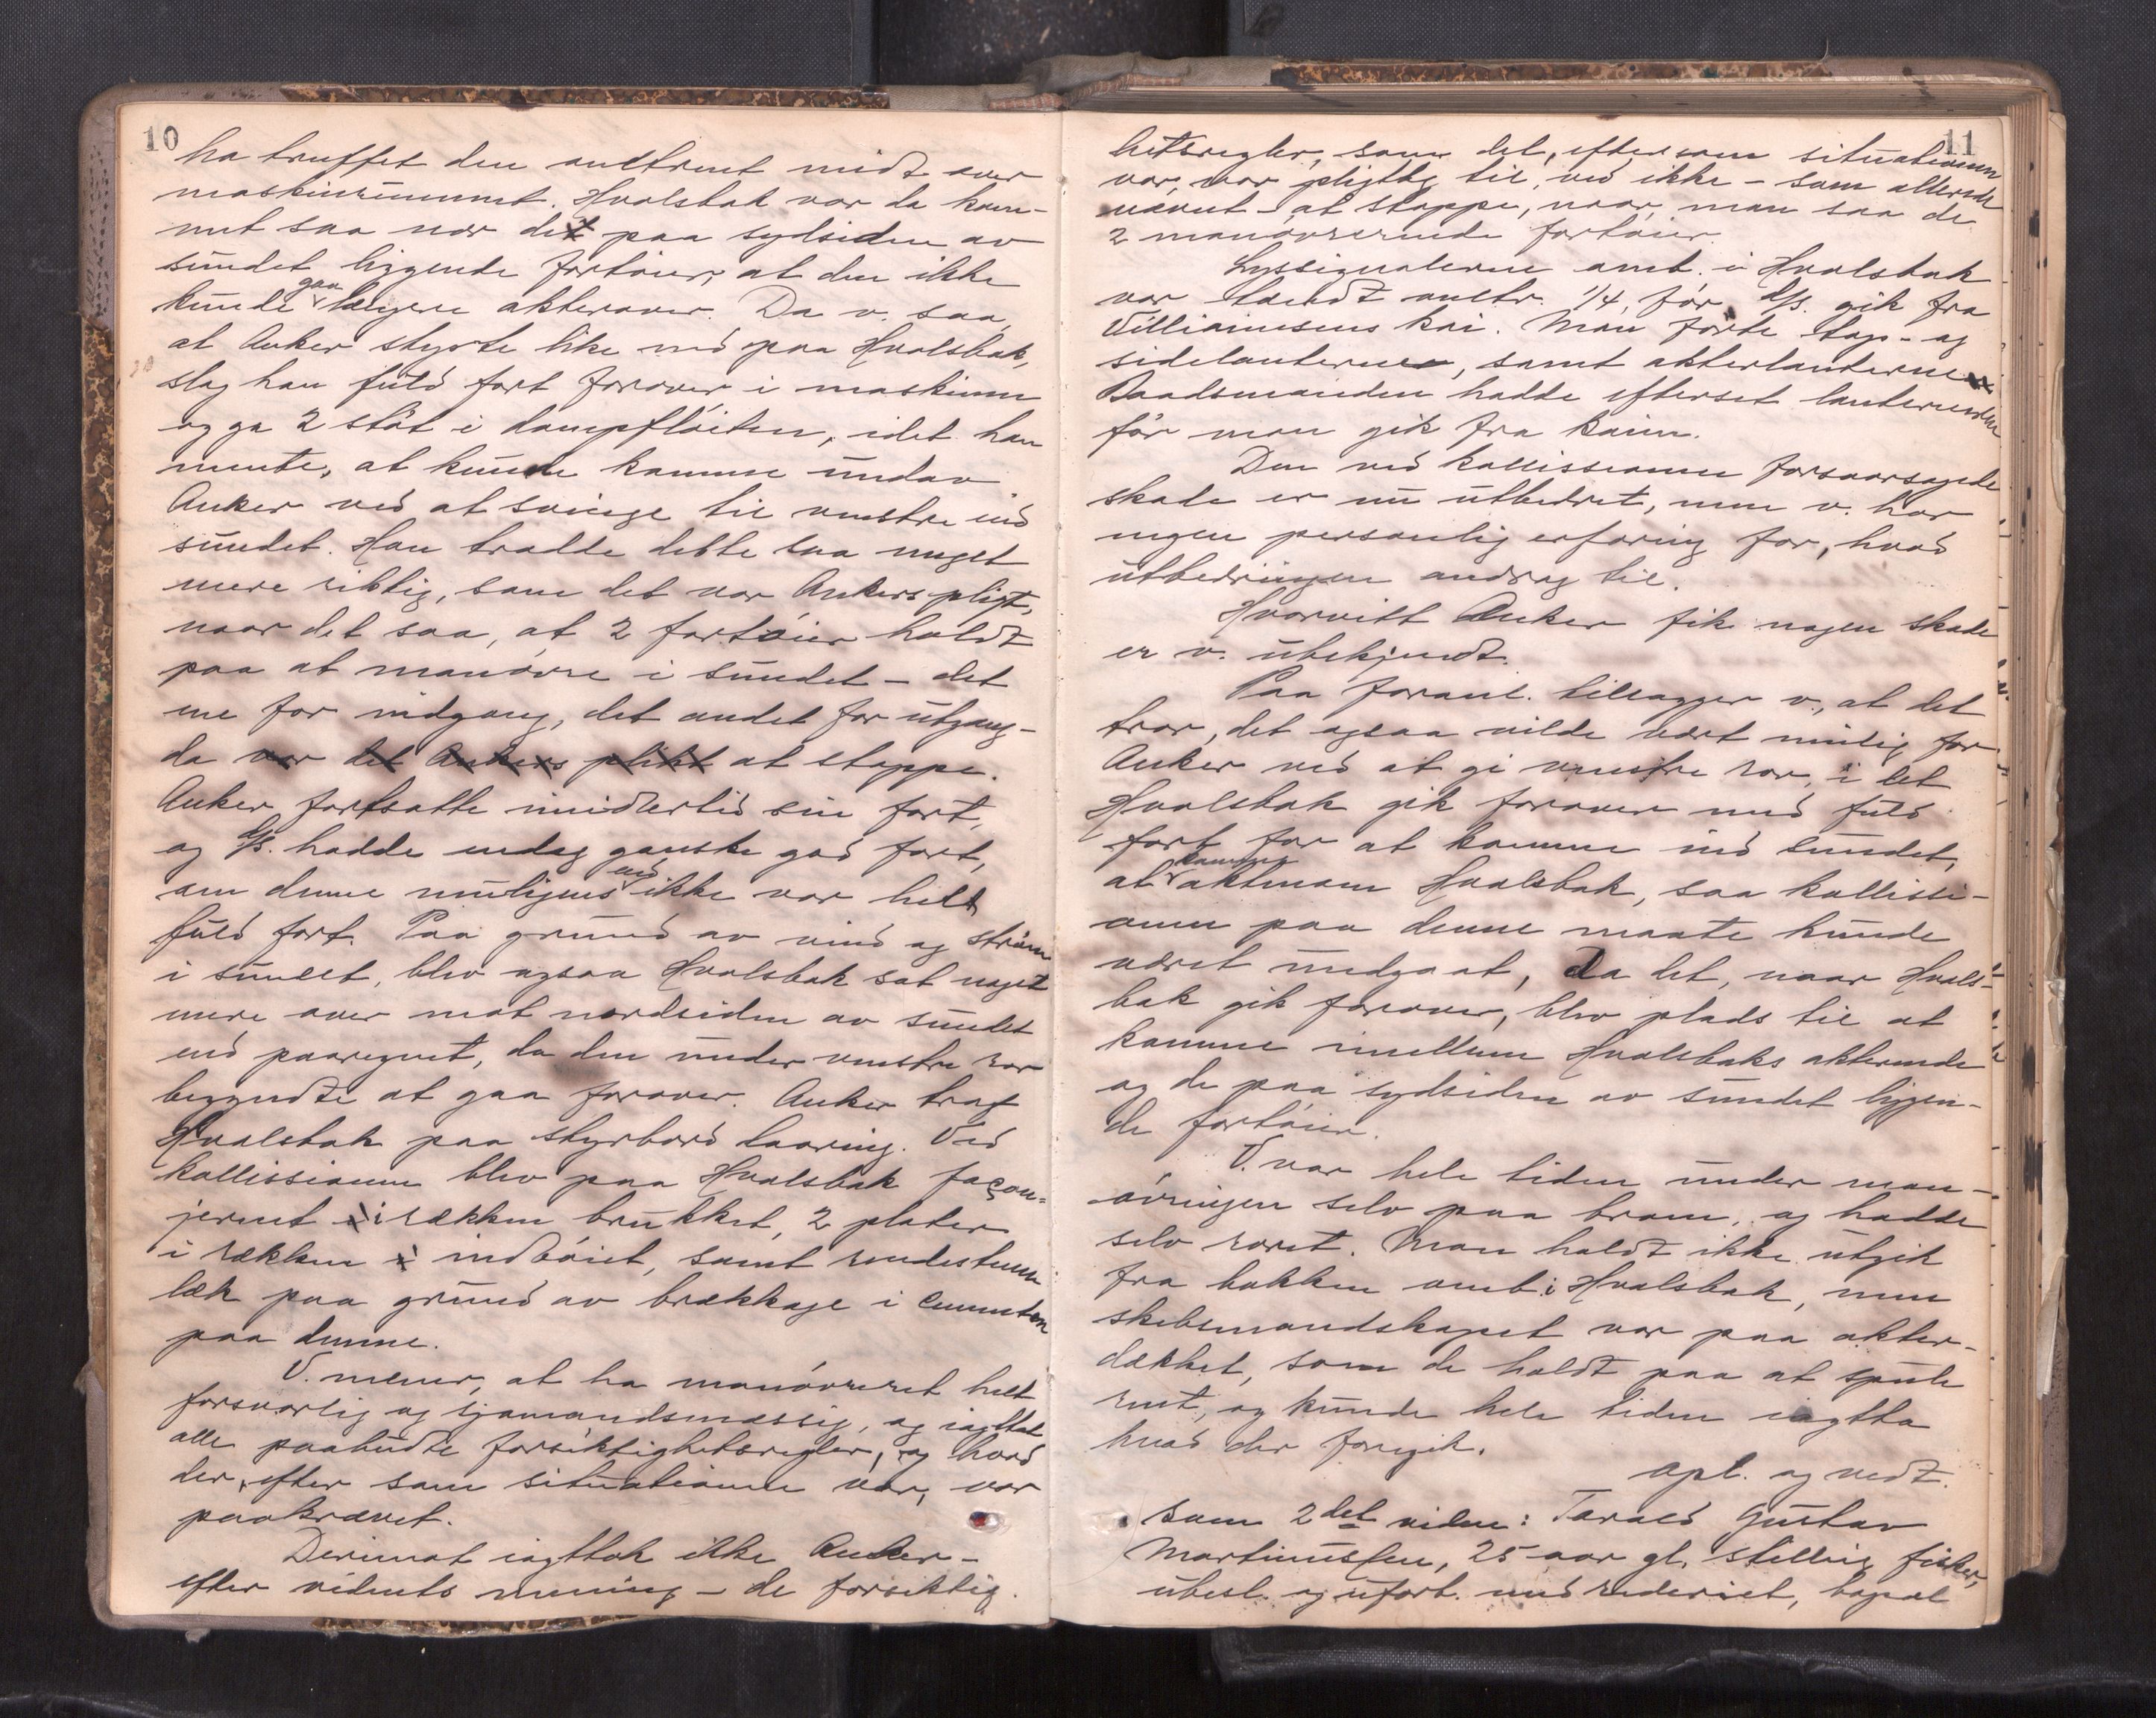 10
ha truffet den anstrent midt over
maskinrummet. Hvalsbak var da kom-
met saa nær det paa sydsiden av
sundet liggende fartöier, at den ikke
kunde gaa længere akterover. Da v. saa,
at Anker styrte like ned paa Hvalsbak,
slog han fuld fart forover i maskinen
og ga 2 stöt i dampflöiten, idet han
mente, at kunde komme undav
Anker ved at svinge til venstre ind
sundet. Han trodde dette saa meget
mere riktig, som det var Ankers pligt,
naar det saa, at 2 fartöier holdt
paa at manövre i sundet – det
ene for indgang, det andet for utgang –
da var det Ankers plikt at stoppe.
Anker fortsatte imidlertid sin fart,
og D/s. hadde endog ganske god fart,
om denne muligens end ikke var helt
fuld fart. Paa grund av vind og ström
i sundet, blev ogsaa Hvalsbak sat noget
mere over mot nordsiden av sundet
end paaregnet, da den under venstre ror
begyndte at gaa forover. Anker traf
Hvalsbak paa styrbord laaring. Ved
kollissionen blev paa Hvalsbak façon-
jernet i rækken brukket, 2 plater
i rækken indböiet, samt rendestenen
læk paa grund av brækkage i cementen
paa denne.
V. mener, at ha manövreret helt
forsvarlig og sjömandsmæssig, og iagttat
alle paabudte forsiktighetsregler, og hvad
der, efter som situationen var, var
paakrævet.
Derimot iagttok ikke Anker –
efter vidnets mening – de forsiktig-
11
hetsregler, som det, eftersom situationen
var, var pligtig til, ved ikke – som allerede
nævnt – at stoppe, naar man saa de
2 manövrerende fartöier.
Lyssignalerne omb. i Hvalsbak
var tændt 1/4, för D/s. gik fra
Villiamsens kai. Man förte top- og
sidelanterner, samt akterlanterne
Baadsmanden hadde efterset lanternerne
för man gik fra kaien.
Den ved kollissionen foraarsagede
skade er nu utbedret, men v. har
ingen personlig erfaring for, hvad
utbedringen androg til.
Hvorvitt Anker fik nogen skade
er v. ubekjendt.
Paa foranl. tillægger v., at det
tror, det ogsaa vilde vært mulig for
Anker ved at gi venstre ror, i det
Hvalsbak gik forover med fuld
fart for at komme ind sundet,
at komme aktenom Hvalsbak, saa kollissi-
onen paa denne maate kunde
været undgaat, da det, naar Hvals-
bak gik forover, blev plads til at
komme imellem Hvalsbaks akterende
og de paa sydsiden av sundet liggen-
de fartöier.
V. var hele tiden under man-
övringen selv paa broen, og hadde
selv roret. Man holdt ikke utgik
fra bakken omb. i Hvalsbak, men
skibsmandskapet var paa akter-
dækket, som de holdt paa at spule
rent, og kunde hele tiden iagtta
hvad der foregik.
opl. og vedt.
Som 2det vidne: Tarald Gustav
Martinussen, 25 aar gl. stilling fisker,
ubesl. og ufort. med rederiet, bopæl